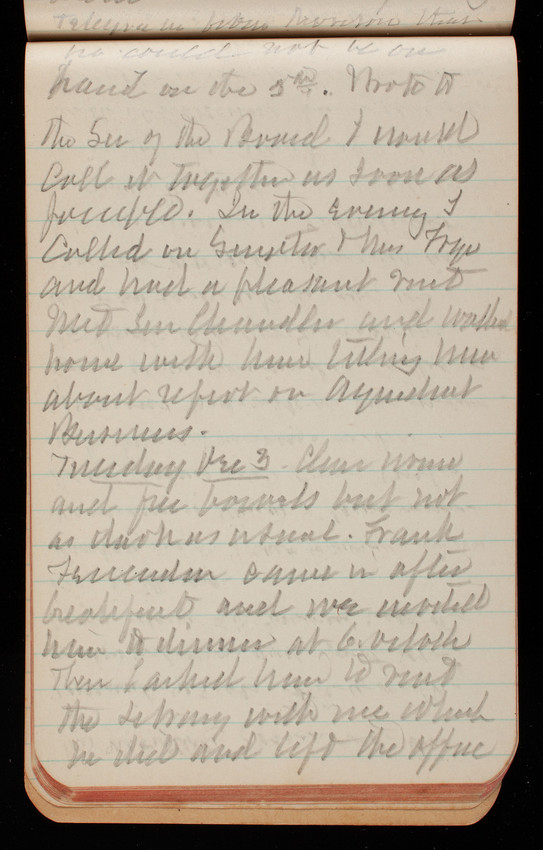 he could not be on
hand on the 5th. Wrote to
the Sec of the Board I would
Call it together as soon as
possible. In the evening I
Called on Senator & Mrs Frye
and had a pleasant visit
Met Sen Chandler and walked
home with him telling him
about report on Aqueduct
Business.
Tuesday Dec 3. Clear
and free bowels but not
as dark as usual. Frank
Fessenden came in after
breakfast and we invited
him to dinner at 6. oclock
Then I asked him to visit
the Library with me which
he did and left the office